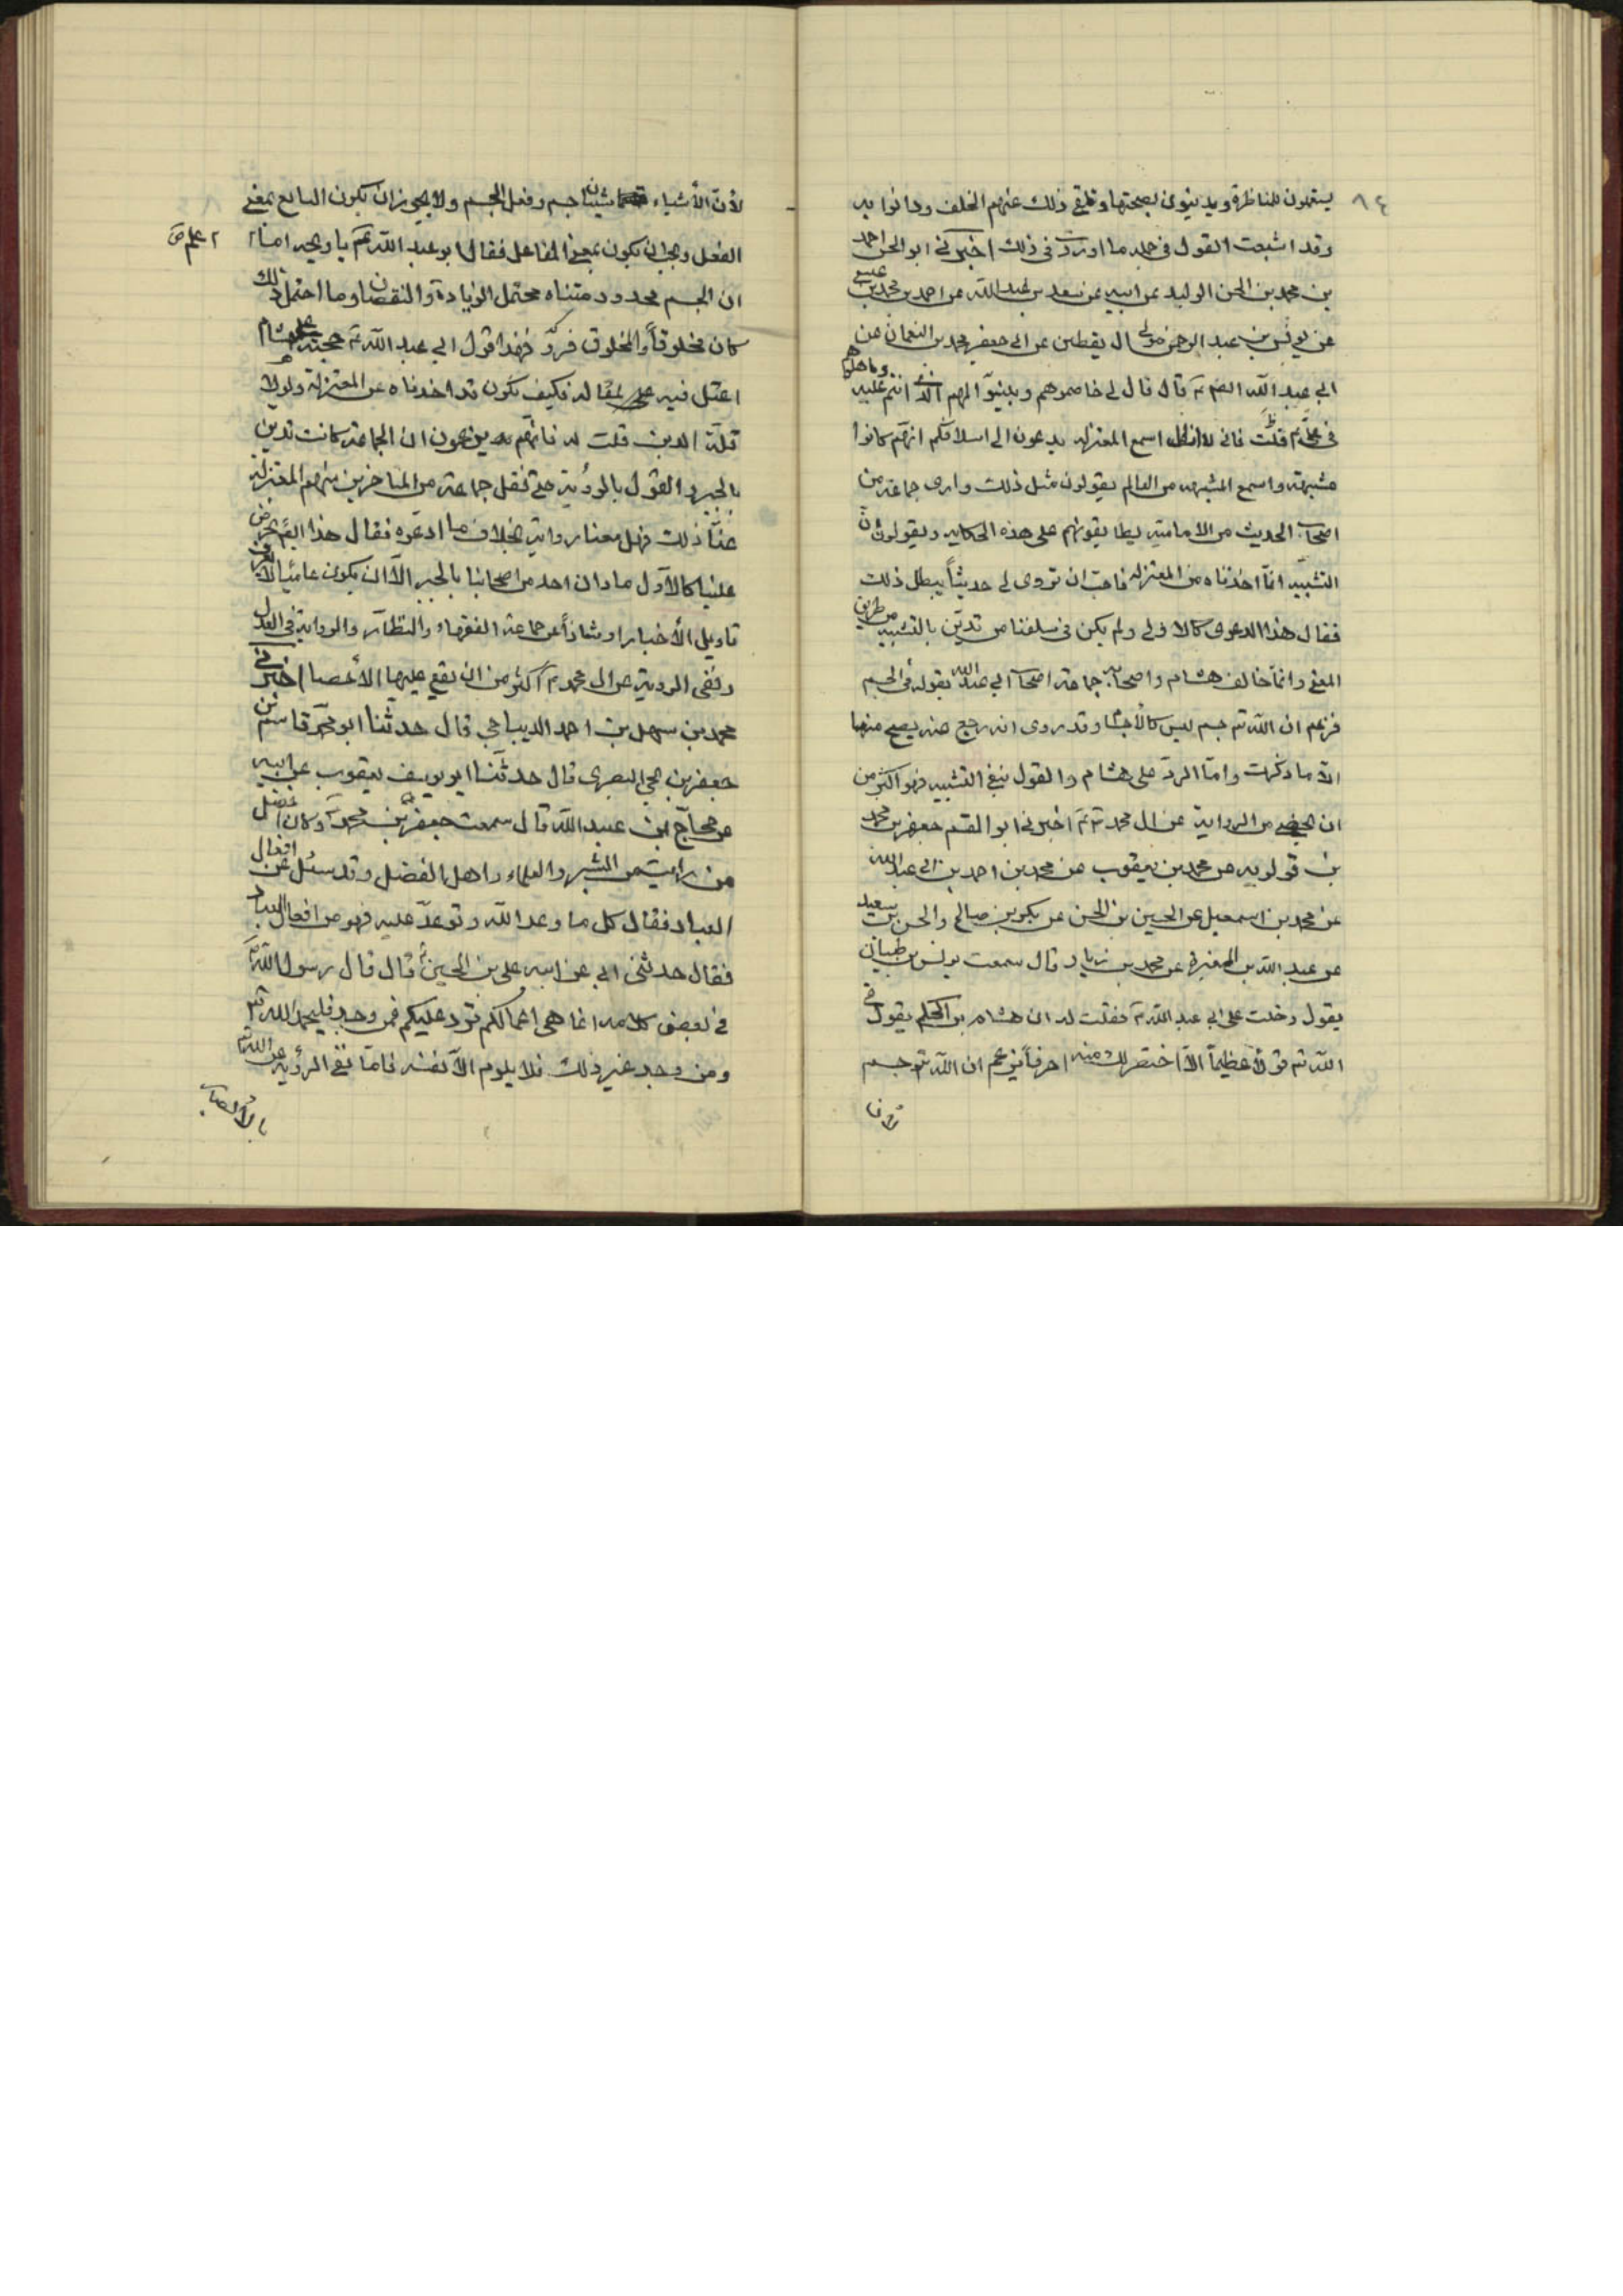 ٨٤
يستعملون المناظرة ويدينون بصحتها وتلقى ذلك عنهم الخلف ودانوا به
وقد اشبعت القول في جلد ما اوردت في ذلك اخبرنى ابو الحسن احمد
بن محمد بن الحسن الوليد عن ابيه عن سعد بن عبد الله عن احمد بن محمد بن عيسى
عن يونس بن عبد الرحمن مولى ال يقطين عن ابى جعفر محمد بن النعمان عن
ابى عبد الله الصم ع قال قال لى خاصموهم وبينوا لهم الهدى الذى انتم عليه
في على ع قلت فانى لا ازال اسمع المعتزلة يدعون الى اسلافكم انهم كانوا
مشبهة واسمع المشبهه من العالم يقولون مثل ذلك وارى جماعة من
اصحاب الحديث من الامامية يطابقونهم على هذه الحكايه ويقولون ان نفى
التشبيه انما اخذناه من المعتزله فاحب ان تروى لى حديثاً يبطل ذلك
فقال هذا الدعوى كالاولى ولم يكن في سلفنا من تدين بالتشبيه من طريق
المعنى وانما خالف هشام واصحابه جماعة اصحاب ابى عبد الله بقوله في الجسم
فزعم ان الله تع جسم ليس كالاجسام وقد روى انه رجع عنه يصح منها
الا ما ذكرت واما الرد على هشام والقول بنفى التشبيه فهو اكثر من
ان يحصى من الرواية عن ال محمد ع اخبرنى ابو القسم جعفر بن محمد
بن قولويه عن محمد بن يعقوب عن محمد بن احمد بن ابى عبد الله
عن محمد بن اسمعيل عن الحسين بن الحسن عن بكر بن صالح والحسن بن سعيد
عن عبد الله بن المغيرة عن محمد بن زياد قال سمعت يونس بن ظبيان
يقول دخلت على ابى عبد الله ع فقلت له ان هشام بن الحكم يقول في
الله تع قولاً عظيماً الا اختصر لك منه احرفاً يزعم ان الله تع جسم
لأن
لأن الأشياء شيئان جسم وفعل الجسم ولا يجوز ان يكون الصانع بمعنى
الفعل ويجب ان يكون بمعنى الفاعل فقال ابو عبد الله ع يا ويحه اما
علم ص
ان الجسم محدود متناه محتمل الزيادة والنقصان وما احتمل ذلك
كان مخلوقاً والمخلوق فهذا قول ابى عبد الله ع حجته على هشام
اعتل فيه على بمقاله فكيف نكون قد اخذناه عن المعتزلة ولولا
قلة الدين قلت له فانهم يدعون ان الجماعة كانت تدين
بالجبر والقول بالرؤية حتى نقل جماعة من المتأخرين منهم المعتزلة
عن ذلك فهل معنا رواية بخلاف ما ادعوه فقال هذا ايضً تخرص
علينا كالاول ما دان احد من اصحابنا بالجبر الا ان يكون عامياً لا يعرف
تاويل الأخبار او شاذاً عن جماعة الفقهاء والنظار والرواية في العدل
ونفى الرؤية عن ال محمد ع اكثر من ان يقع عليها الأحصا اخبرنى
محمد بن سهل بن احمد الديباجى قال حدثنا ابو محمد قاسم بن
جعفر بن يحيى البصرى قال حدثنا ابو يوسف يعقوب عن ابيه
عن حجاج بن عبد الله قال سمعت جعفر بن محمد وكان افضل
من رايت من الشرفاء والعلماء واهل الفضل وقد سئل عن افعال
العباد فقال كل ما وعد الله وتوعد عليه فهو من افعال العباد
فقال حدثنى ابى عن ابيه على بن الحسين قال قال رسول الله ص
في بعض كلامه انما هي اعمالكم ترد عليكم فمن وجد خيراً فليحمد الله تع
ومن وجد غير ذلك فلا يلوم الا نفسه فاما نفى الرؤية عن الله تع
بالأبصار